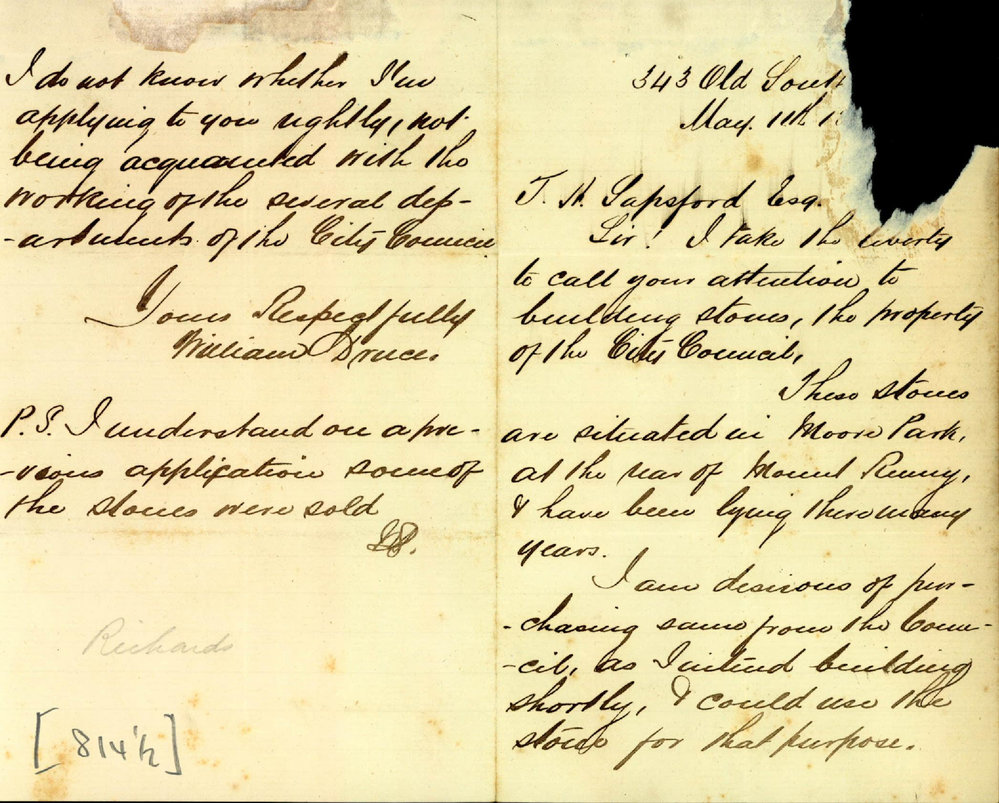 343 Old South
May. 11th 1
T. H. Sapsford Esq.
Sir! I take the liverty
to call your attention to
building stones, the property
of the City Council,
These stones
are situated in Moore Park,
at the rear of Mount Renny,
& have been lying there many
years.
I am desirous of pur-
-chasing same from the Coun-
-cil, as I intend building
shortly, & could use the
stone for that purpose.
I do not know whether I'm
applying to you rightly, not
being acquainted with the
working of the several dep-
-artments of the City Council
Yours Respectfully
William Druce.
P.S. I understand on a pre-
-vious application some of
the stones were sold
Richards
[814½]